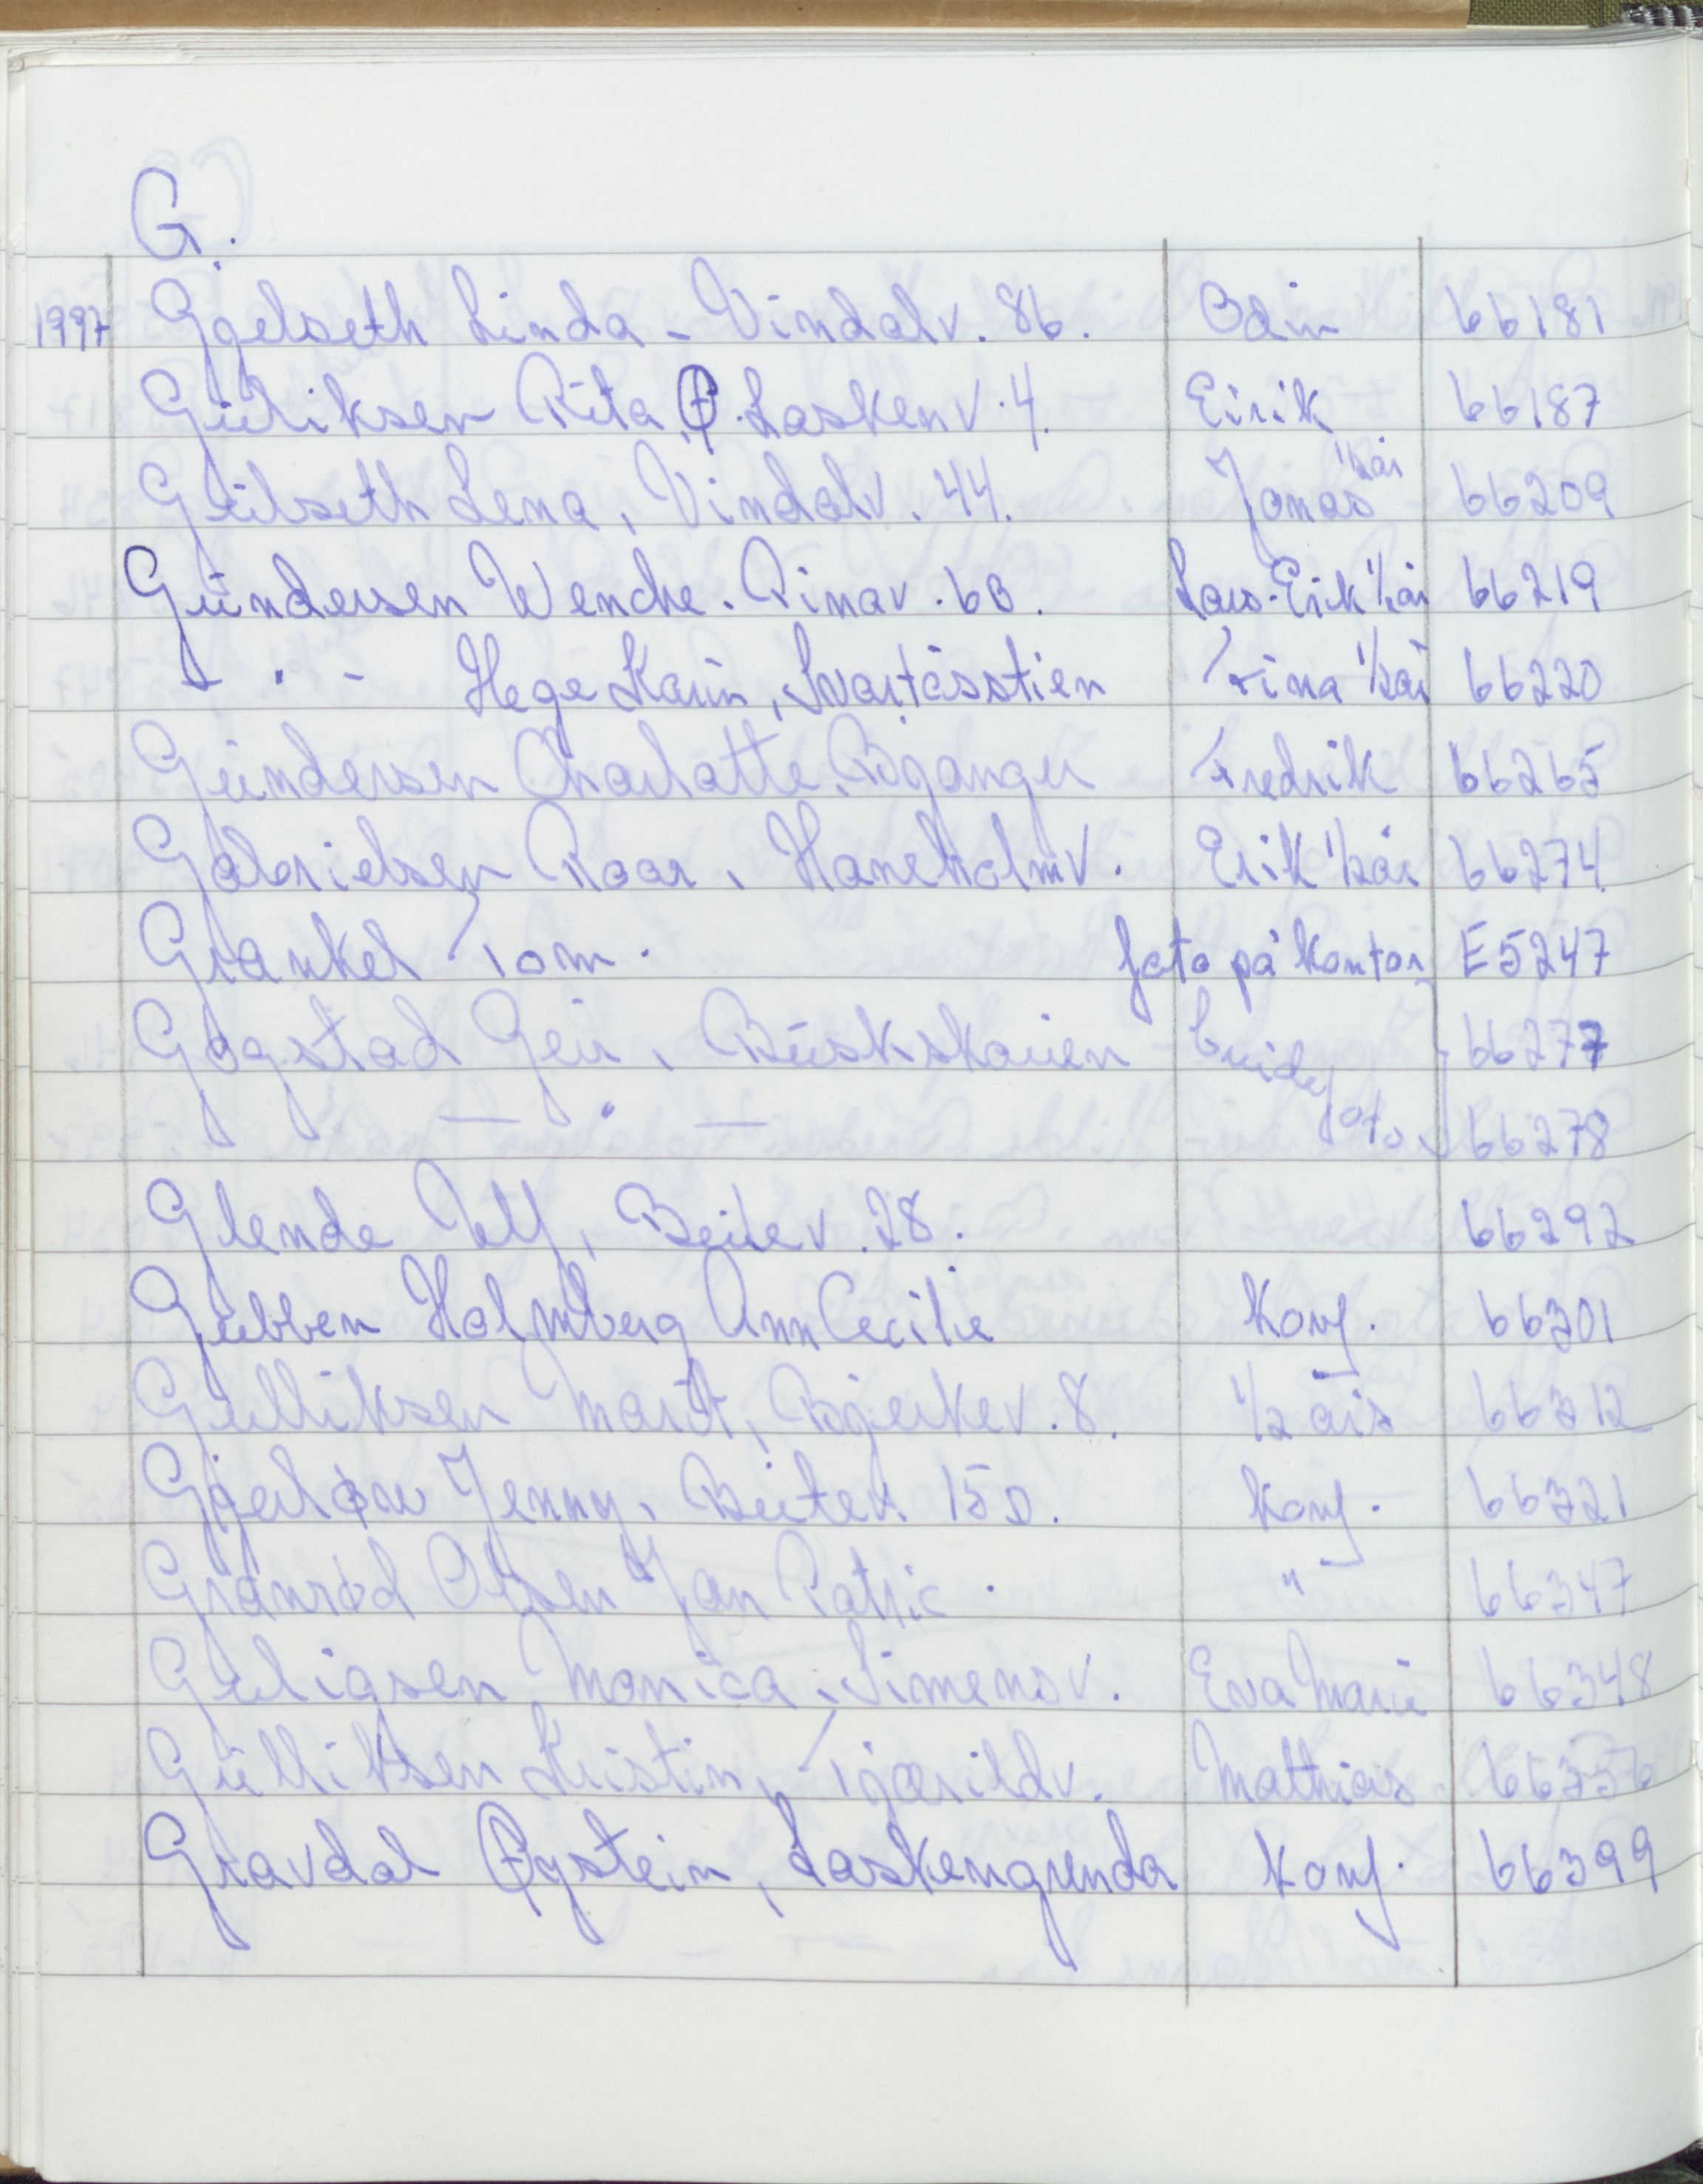 G.
1997 Gjelseth Linda - Vindalv. 86. Odin 66181
Gulliksen Rita Ø. Laskenv. 4. Eirik 66187
Gulseth Lena, Vindalv. 44. Jonas 1/2 år 66209
Gundersen Wenche. Rinav. 6B. Lars-Erik 1/2 år 66219
- " - Hege Karin, Svartåsstien Tina 1/2 år 66220
Gundersen Charlotte, Fredrik 66265
Gabrielsen Roar, Haneholmv. Erik 1/2 år 66274
Grankel Tom. foto på kontor E5247
Gogstad Geir, Buskskauen brude 66277
— " — foto 66278
Glende Ulf, Beitev. 28. 66292
Gubben Holmberg Ann Cecilie Konf. 66301
Gulliksen Marit, Bjerkev. 8. 1/2 års 66312
Gjerløw Jenny, Beitev. 15D. Konf. 66321
Granrød Olsen Jan Patric. " 66347
Guligsen Monica, Simensv. Eva Marie 66348
Gulliksen Kristin, Tjærildv. Mathias 66356
Gravdal Øystein, Laskengrenda Konf. 66399